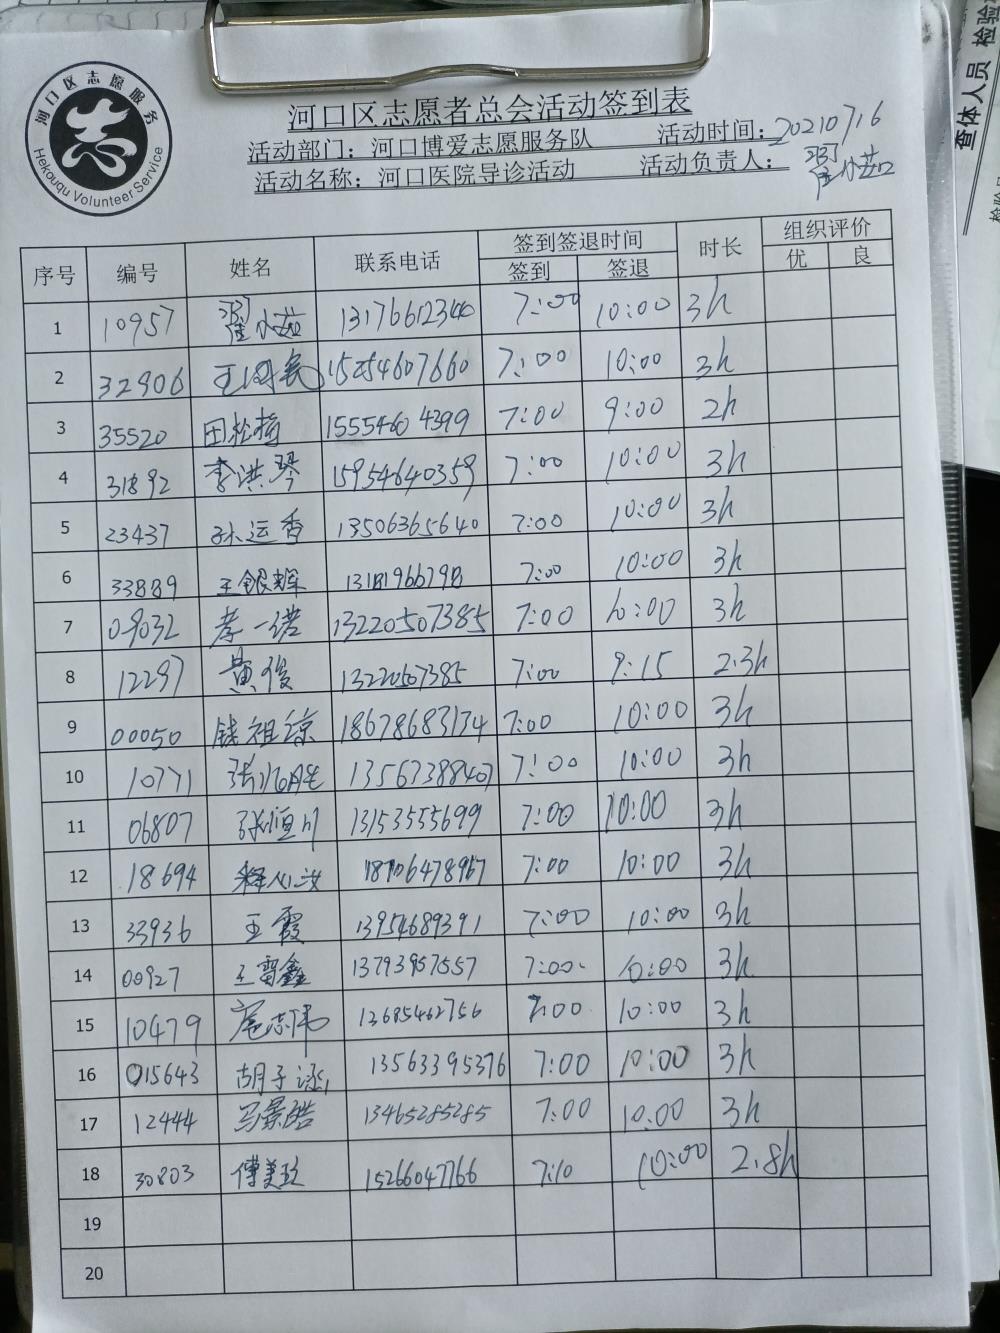 河口区志愿服务
志
Hekouqu Volunteer Service
河口区志愿者总会活动签到表
活动部门：河口博爱志愿服务队 活动时间：20210716
活动名称：河口医院导诊活动 活动负责人：
查体人员 检验
序号 编号 姓名 联系电话 签到签退时间 时长 组织评价
签到 签退 优 良
1 10957 13176612340 7:00 10:00 3h
2 32906 15254607660 7:00 10:00 3h
3 35520 田松梅 15554604399 7:00 9:00 2h
4 31892 李洪琴 15954640359 7:00 10:00 3h
5 23437 孙运香 13506365640 7:00 10:00 3h
6 33889 王银辉 7:00 10:00 3h
7 09032 一诺 13220507385 7:00 10:00 3h
8 12297 黄俊 13220507385 7:00 9:15 2.3h
9 00050 钱祖琼 18678683134 7:00 10:00 3h
10 10771 13567388407 7:00 10:00 3h
11 06807 张恒川 13153555699 7:00 10:00 3h
12 18694 7:00 10:00 3h
13 33936 王霞 13954689391 7:00 10:00 3h
14 00927 王雷鑫 13793957557 7:00 10:00 3h
15 10479 13685462756 7:00 10:00 3h
16 015643 胡子 13563395376 7:00 10:00 3h
17 12444 马景皓 13465285285 7:00 10:00 3h
18 30803 傅美玲 15266047766 7:10 10:00 2.8h
19
20